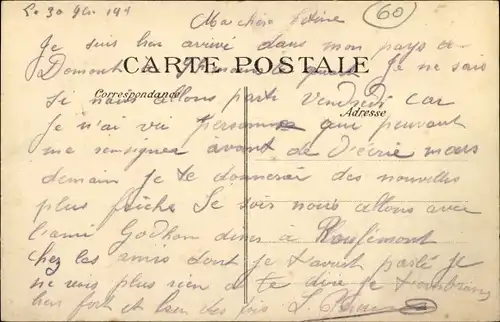 Le 30
Ma chère
60
Je suis bien arrivé dans mon pays a
Domont Je ne sais
CARTE POSTALE
Correspondance
Adresse
Si nous allons parti Vendredi car
Je n'ai vu personne qui peuvent
me renseigner avant de t'écrire mais
demain je te donnerai des nouvelles
plus fraiche Ce soir nous allons avec
l'ami Godhon diner a
chez les amis dont je t'avait parlé Je
ne vois plus rien a te dire je t'embrasse
bien fort et bien des fois L.